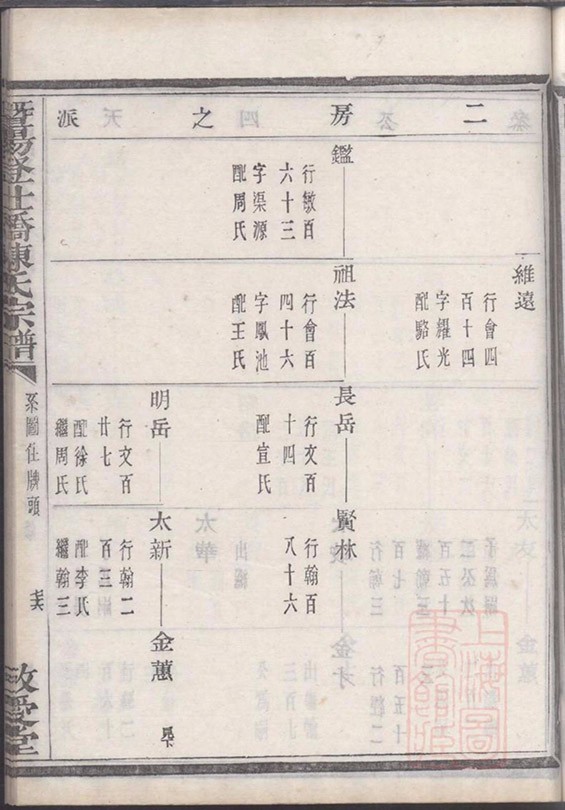 二房之派
維遠
行會四
百十四
字耀光
配駱氏
鑑
行敏百
六十三
字渠源
配周氏
祖法
行會百
四十六
字鳳池
配王氏
長岳
行文百
十四
配宣氏
賢林
行翰百
八十六
明岳
行文百
廿七
配徐氏
繼周氏
太新
行翰二
百三
配李氏
繼翰三
金蕙
暨陽登仕橋陳氏宗譜
系圖仕牌頭
敬愛堂
上海圖書館藏